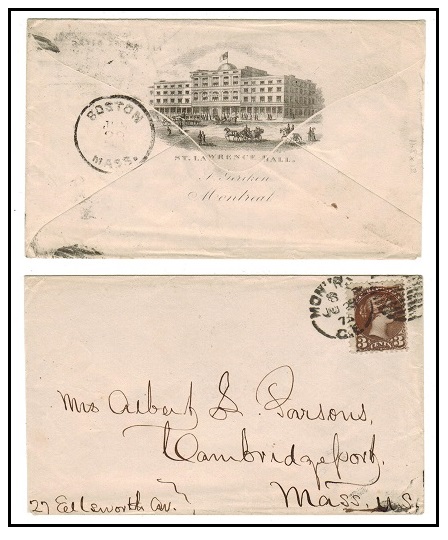 BOSTON
MASS.
ST. LAWRENCE HALL,
Montreal
MON
3 CENTS 3
Mrs Albert L. Parsons,
Cambridgeport,
Mass, U.S.
27 Ellsworth Av.